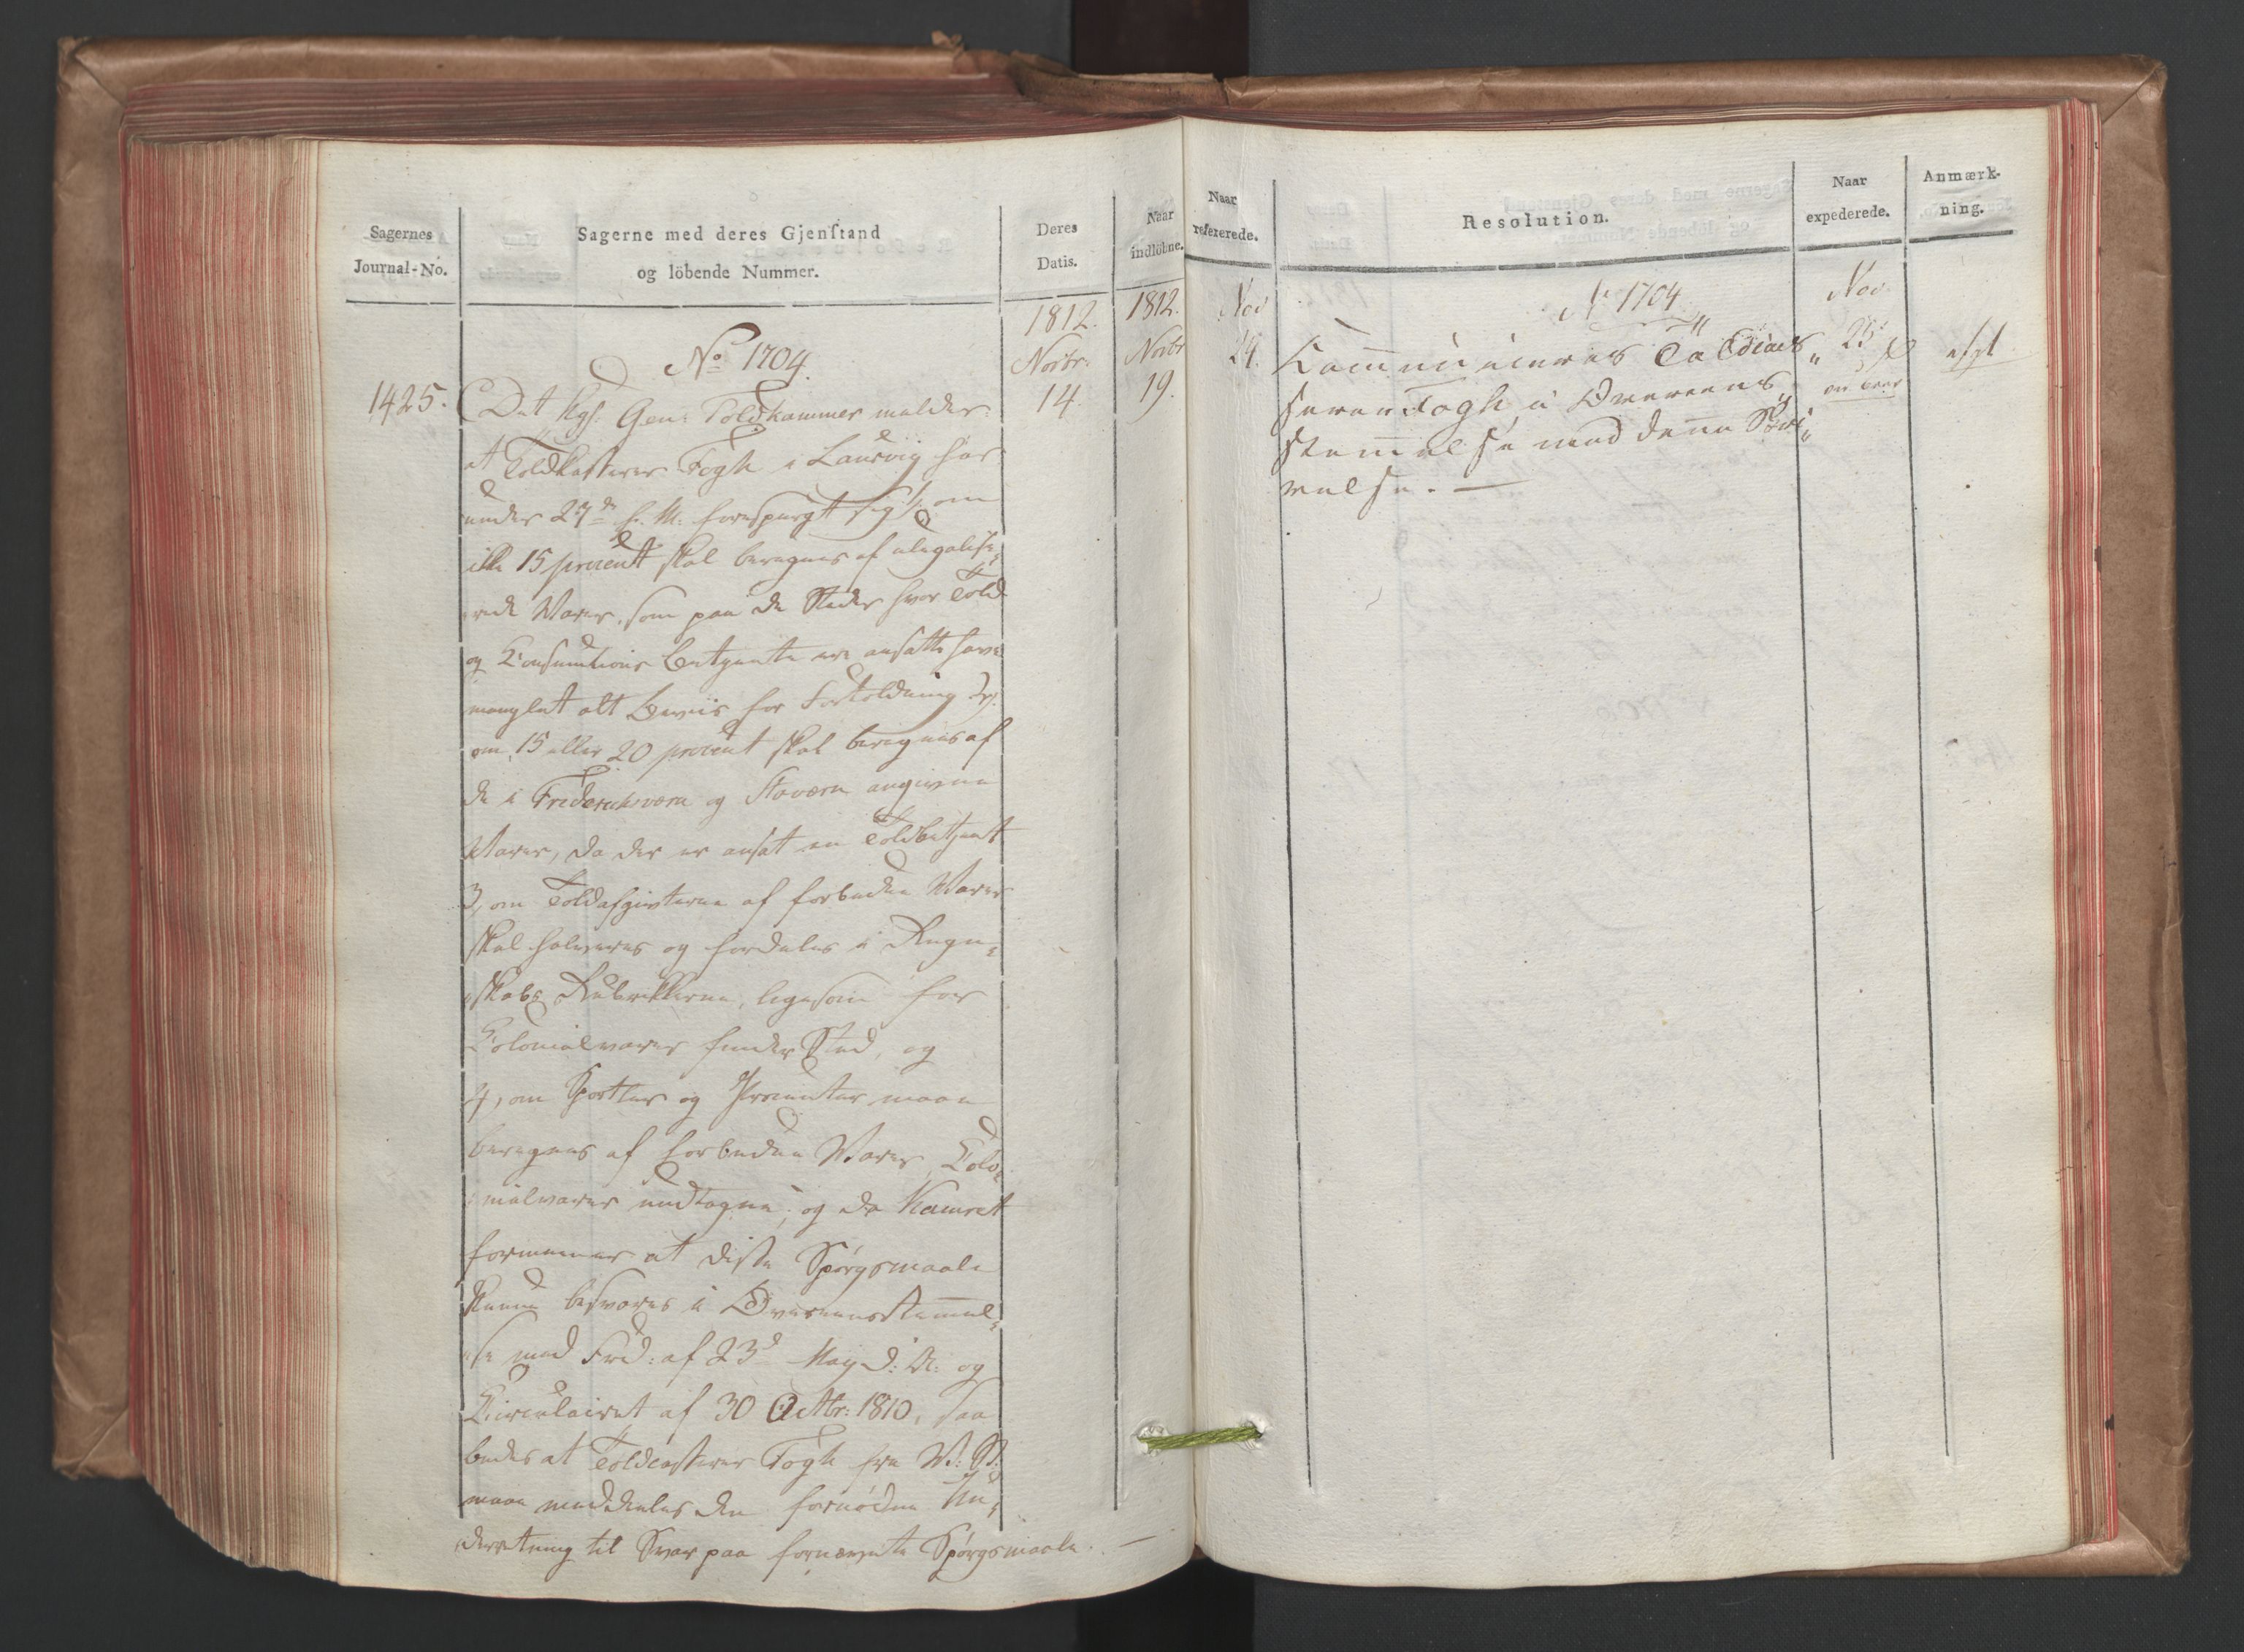 Sagernes
Journal-No.
Sagerne med deres Gjenstand
og löbende Nummer.
Deres
Datis.
Naar
indlöbne.
1812.
Novbr.
14.
1812.
Novbr
19.
No 1704.
1425.
Det Kgl. Gen: Toldkammer melder:
at Toldkasserer Fogh i Laurvig har
under 27de f. M. forespurgt sig 1, om
ikke 15 procent skal beregnes af ulegalise-
rede Varer, som paa de Steder hvor Told
og Consumtions Betjente ere ansatte have
manglet alt Beviis for Fortoldning 2,
om 15 eller 20 procent skal beregnes af
de i Frideriksværn og Stavern angivne
Varer, da der er ansat en Toldbetjent
3, om Toldafgivterne af forbudne Varer
skal halveres og fordeles i Regn-
skabs Rubrikkerne, ligesom for
Colonialvarer finder Sted, og
4, om Sportler og Procenter maae
beregnes af forbudne Varer, Colo-
nialvarer undtagne; og da Kamret
formener at disse Spørgsmaale
kunne besvares i Overeensstemmel-
se med Frd: af 23d May d: A: og
Circulairet af 30 Octbr: 1810, saa
bedes at Toldcasserer Fogh fra V: S:
maae meddeeles den fornødne Un-
derretning til Svar paa fornævnte Spørgsmaale. —
Naar
refererede.
Resolution.
Naar
expederede.
Anmærk-
ning.
Nov
24.
No 1704
Communiceres Toldcas
serer Fogh i Overeens
stemmelse med denne Skri
velse. —
Nov.
25